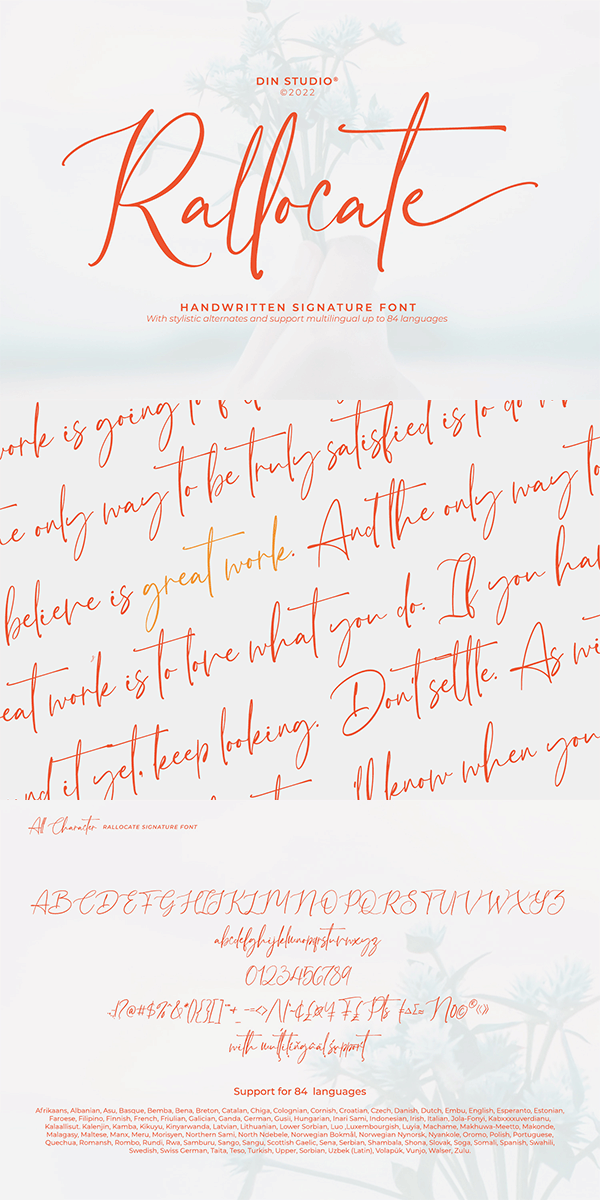 DIN STUDIO®
©2022
Rallocate
HANDWRITTEN SIGNATURE FONT
With stylistic alternates and support multilingual up to 84 languages
work is going to
only way to be truly satisfied is to do
believe is great work. And the only way to
work is to love what you do. If you
it yet, keep looking. Don't settle. As
'll know when you
All Character RALLOCATE SIGNATURE FONT
ABCDEFGHIJKLMNOPQRSTUVWXYZ
abcdefghijklmnopqrstuvwxyz
0123456789
with multilingual support
Support for 84 languages
Afrikaans, Albanian, Asu, Basque, Bemba, Bena, Breton, Catalan, Chiga, Colognian, Cornish, Croatian, Czech, Danish, Dutch, Embu, English, Esperanto, Estonian,
Faroese, Filipino, Finnish, French, Friulian, Galician, Ganda, German, Gusii, Hungarian, Inari Sami, Indonesian, Irish, Italian, Jola-Fonyi, Kabuverdianu,
Kalaallisut, Kalenjin, Kamba, Kikuyu, Kinyarwanda, Latvian, Lithuanian, Lower Sorbian, Luo ,Luxembourgish, Luyia, Machame, Makhuwa-Meetto, Makonde,
Malagasy, Maltese, Manx, Meru, Morisyen, Northern Sami, North Ndebele, Norwegian Bokmål, Norwegian Nynorsk, Nyankole, Oromo, Polish, Portuguese,
Quechua, Romansh, Rombo, Rundi, Rwa, Samburu, Sango, Sangu, Scottish Gaelic, Sena, Serbian, Shambala, Shona, Slovak, Soga, Somali, Spanish, Swahili,
Swedish, Swiss German, Taita, Teso, Turkish, Upper, Sorbian, Uzbek (Latin), Volapük, Vunjo, Walser, Zulu.